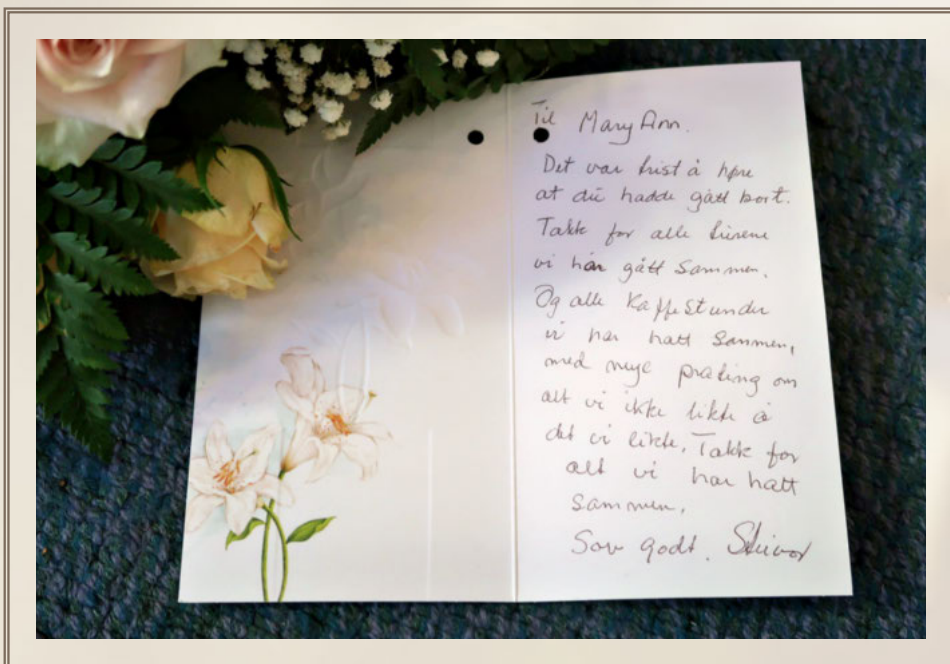 Til Mary Ann.
Det var trist å høre
at du hadde gått bort.
Takk for alle turene
vi har gått sammen.
Og alle Kaffestunder
vi har hatt sammen,
med mye prating om
alt vi ikke likte å
det vi likte. Takk for
alt vi har hatt
sammen.
Sov godt.